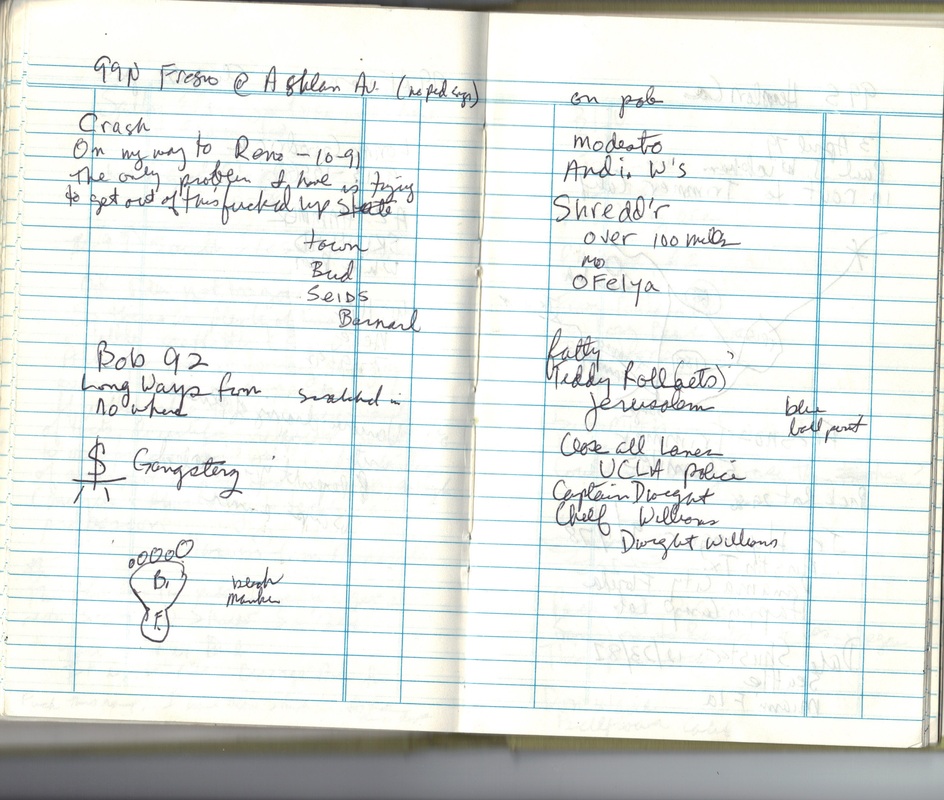 99N Fresno @ Ashlan Av. (no ped sign)
Crash
On my way to Reno - 10-91
The only problem I have is trying
to get out of this fucked up State
town
Bud
SEIDS
Barnard
Bob 92
Long Ways from
no where
scratched in
$ Gangsterz
B.
F.
bleigh
marker
on pole
modesto
Andi. W's
Shredd'r
over 100 miles
mo
OFelya
fatty
Teddy Roll (aets)
Jerusalem
blue
ball point
Close all Lanes
UCLA police
Captain Dwight
Chelf Williams
Dwight Williams